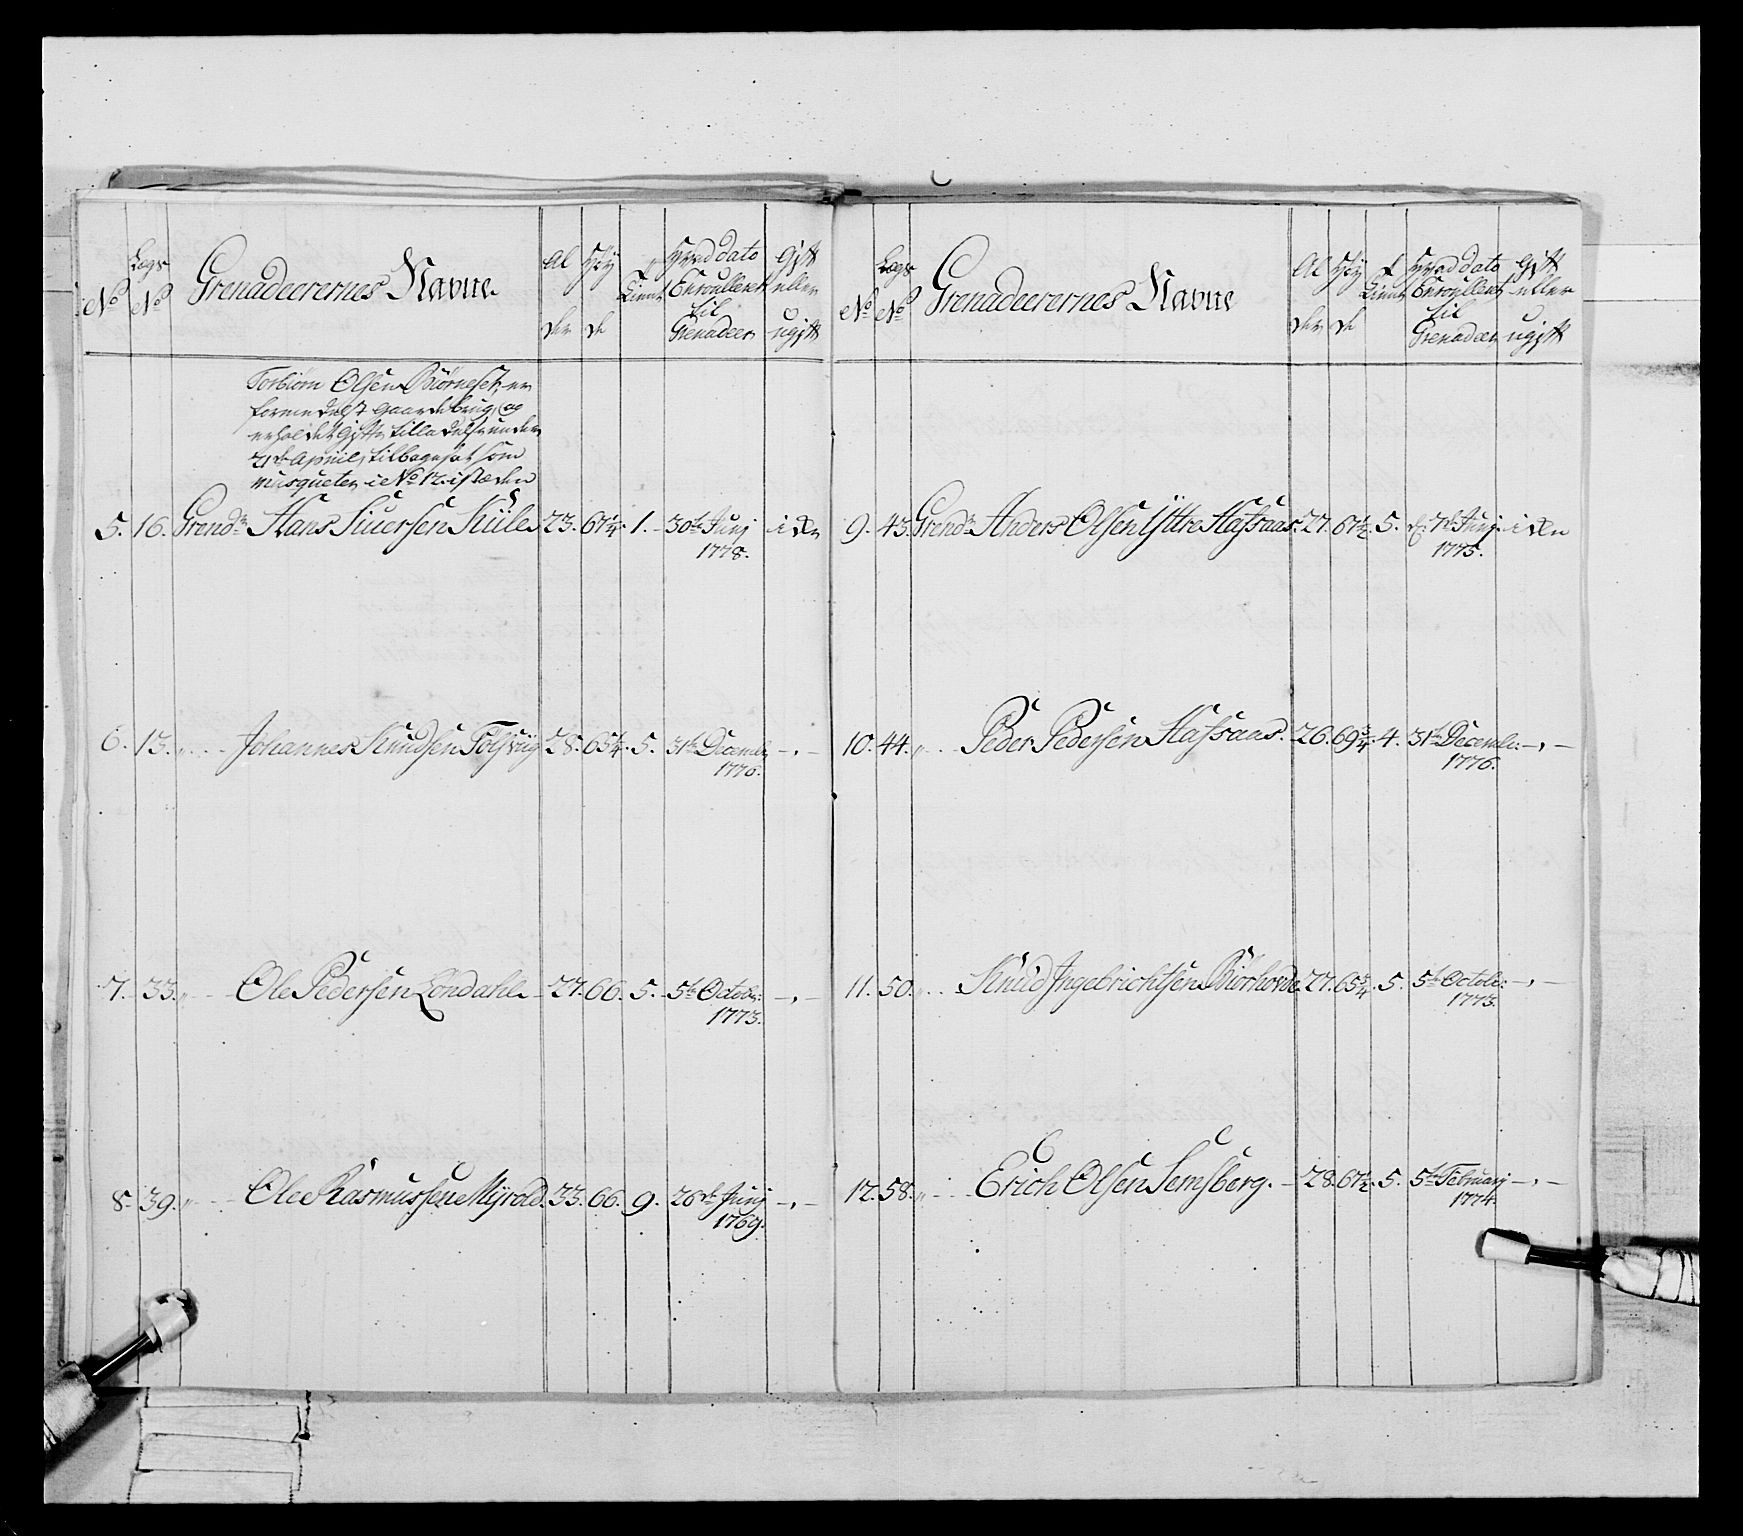 No Lægs No Grenadeerernes Navne Alder Høyde Tient Hvad dato Enroullert til Grenadeer Gift eller ugift
Torbiørn Olsen Biørneset, er
formedelst Gaardebrug, og
erholdet Gifte tilladelse under
21de April, tilbagesat som
Musqueter i No 12. istæden
5. 16. Grendr Hans Siuersen Kiile 23. 67 1/4. 1. 30te Junj 1778. iden
6. 13. " Johannes Knudsen 28. 65 1/4. 5. 31te Decembr 1776. - , -
7. 33. " Ole Pedersen Löndahl 27. 66. 5. 5te Octobr: 1773. - , -
8. 39. " Ole Rasmussen Myrold. 33. 66. 9. 26de Junj 1769. - , -
No Lægs No Grenadeerernes Navne Alder Høyde Tient Hvad dato Enroullert til Grenadeer Gift eller ugift
9. 43. Grendr Anders Olsen Yttre Hafsaas. 27. 67 1/2. 5. d: 7de Junj 1775. iden
10. 44. " Peder Pedersen Hafsaas. 26. 69 3/4. 4. 31te Decembr: 1776. - , -
11. 50. " Knud Ingebrichtsen Biörhovde. 27. 65 3/4. 5. 5te Octobr: 1773. - , -
12. 58. " Erich Olsen Semsberg. 28. 67 1/2. 5. 5te Februarj 1774. - , -